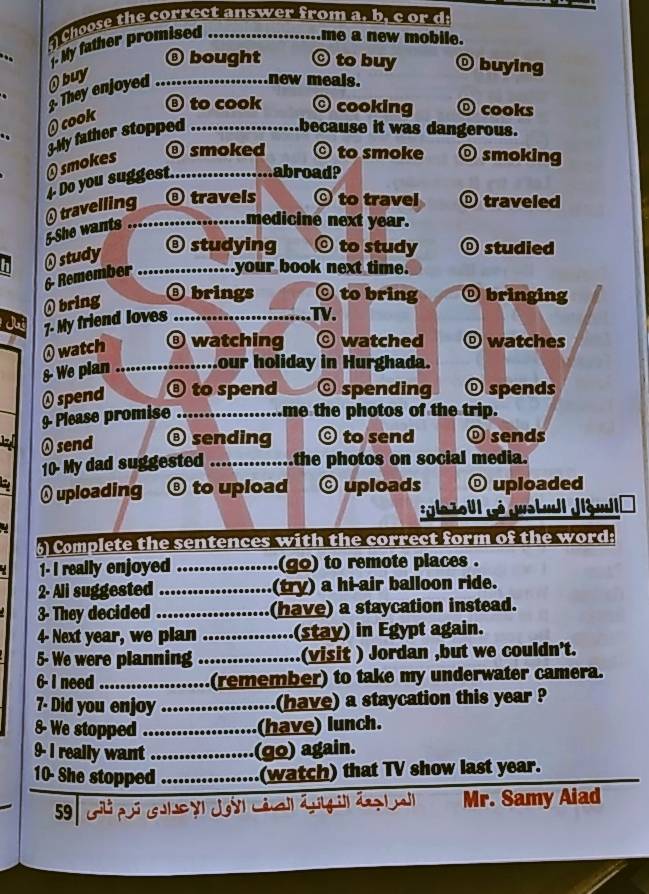 5) Choose the correct answer from a, b, c or d:
1- My father promised ......................me a new mobile.
Ⓐ buy Ⓑ bought Ⓒ to buy Ⓓ buying
2- They enjoyed ......................new meals.
Ⓐ cook Ⓑ to cook Ⓒ cooking Ⓓ cooks
3-My father stopped ......................because it was dangerous.
Ⓐ smokes Ⓑ smoked Ⓒ to smoke Ⓓ smoking
4- Do you suggest......................abroad?
Ⓐ travelling Ⓑ travels Ⓒ to travel Ⓓ traveled
5-She wants ......................medicine next year.
Ⓐ study Ⓑ studying Ⓒ to study Ⓓ studied
6- Remember ...................your book next time.
Ⓐ bring Ⓑ brings Ⓒ to bring Ⓓ bringing
7- My friend loves ..........................TV.
Ⓐ watch Ⓑ watching Ⓒ watched Ⓓ watches
8- We plan ....................our holiday in Hurghada.
Ⓐ spend Ⓑ to spend Ⓒ spending Ⓓ spends
9- Please promise ....................me the photos of the trip.
Ⓐ send Ⓑ sending Ⓒ to send Ⓓ sends
10- My dad suggested ................the photos on social media.
Ⓐ uploading Ⓑ to upload Ⓒ uploads Ⓓ uploaded
السؤال السادس في الامتحان:
6) Complete the sentences with the correct form of the word:
1- I really enjoyed ....................(go) to remote places .
2- Ali suggested ......................(try) a hi-air balloon ride.
3- They decided ......................(have) a staycation instead.
4- Next year, we plan ..................(stay) in Egypt again.
5- We were planning ....................(visit ) Jordan ,but we couldn't.
6- I need ......................(remember) to take my underwater camera.
7- Did you enjoy ......................(have) a staycation this year ?
8- We stopped ......................(have) lunch.
9- I really want ....................(go) again.
10- She stopped ...................(watch) that TV show last year.
59 المراجعة النهائية الصف الأول الإعدادى ترم ثانى Mr. Samy Aiad
Mr.
Samy
AIAD